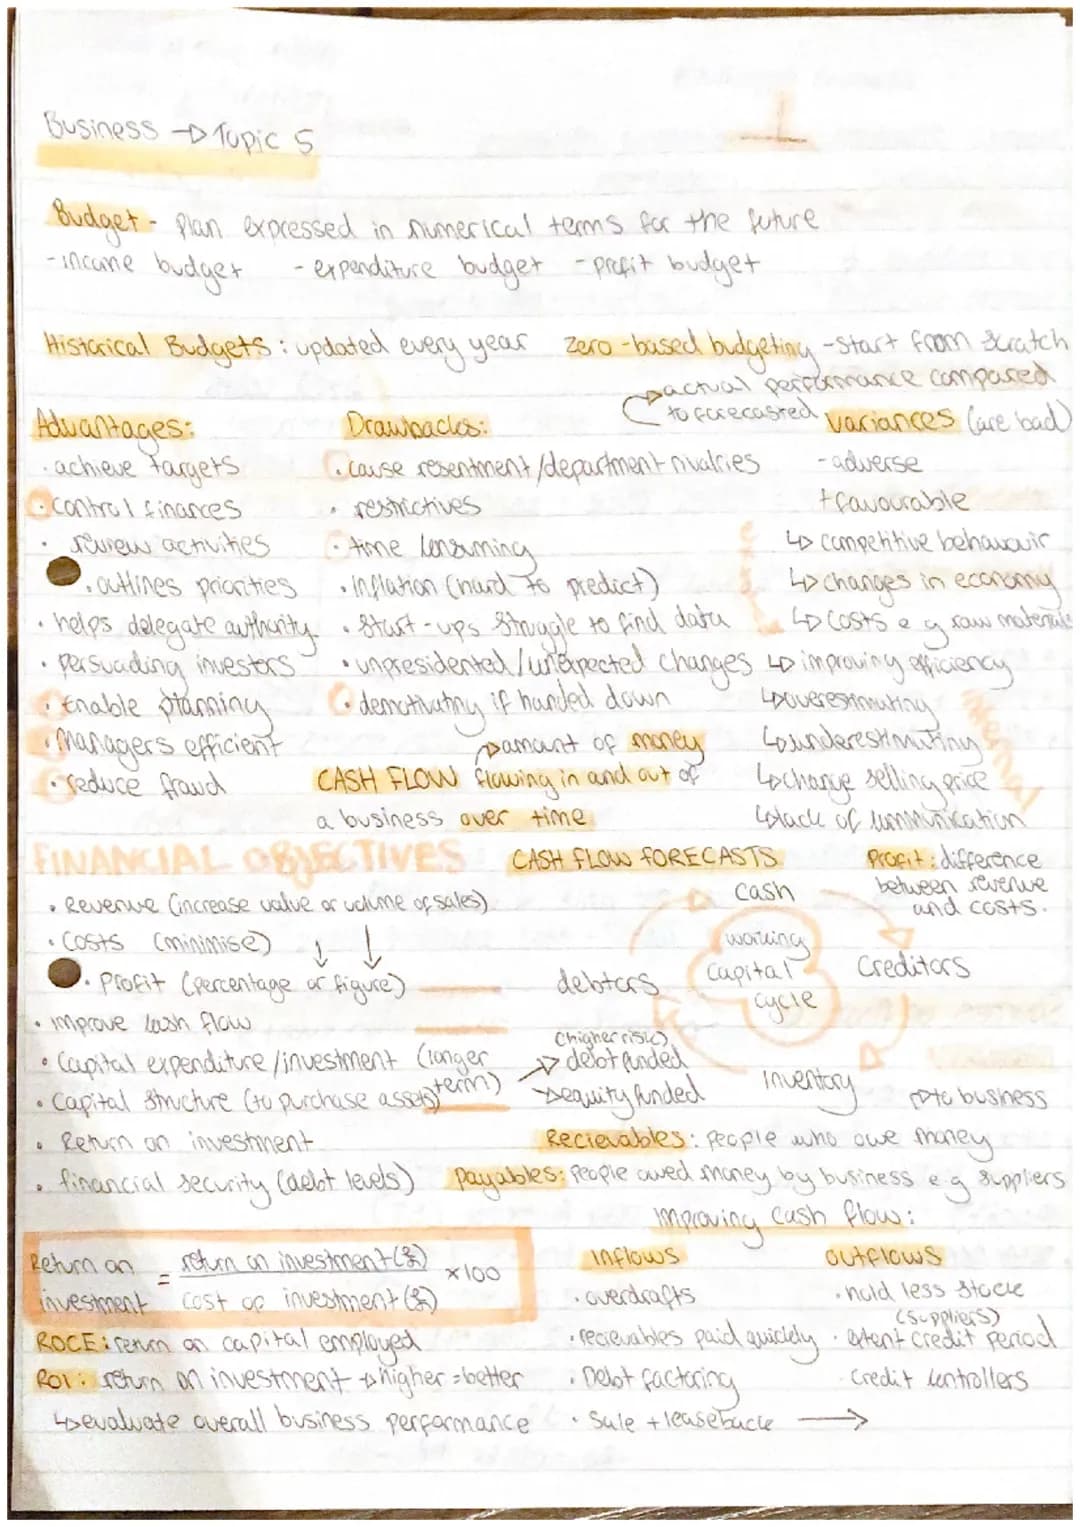 Business → Topic 5
Budget - Plan expressed in numerical terms for the future
- income budget - expenditure budget - profit budget
Historical Budgets : updated every year
Zero-based budgeting - start from scratch
→ actual performance compared
to forecasted
variances (are bad)
- adverse
+ favourable
external
↳ competitive behaviour
↳ changes in economy
↳ costs e g raw materials
internal
↳ improving efficiency
↳ overestimating
↳ underestimating
↳ change selling price
↳ lack of communication
Advantages:
· achieve targets
· control finances
· review activities
· outlines priorities
· helps delegate authority
· persuading investors
· Enable planning
· managers efficient
· reduce fraud
Drawbacks:
· cause resentment/department rivalries
· restrictives
· time consuming
· inflation (hard to predict)
· Start-ups struggle to find data
· unpresidented/unexpected changes
· demotivating if handed down
→ amount of money
CASH FLOW flowing in and out of
a business over time
FINANCIAL OBJECTIVES
· Revenue (increase value or volume of sales)
· Costs (minimise) ↓ ↓
· Profit (percentage or figure)
· improve cash flow
· Capital expenditure/investment (longer
term)
· Capital Structure (to purchase assets)
→ debt funded
(higher risk)
→ equity funded
· Return on investment
· financial security (debt levels)
CASH FLOW FORECASTS
cash
Creditors
Inventory
debtors
working
capital
cycle
Profit : difference
between revenue
and costs.
Recievables : People who owe money
→ to business
payables : People owed money by business e.g suppliers
Return on
investment = return on investment (£)
cost of investment (£) ×100
ROCE : return on capital employed
ROI : return on investment → higher = better
↳ evaluate overall business performance
Improving cash flow :
Inflows
· overdrafts
· recievables paid quickly
· Debt factoring
· Sale + leaseback →
outflows
· hold less stock
(suppliers)
· extent credit period
· Credit controllers